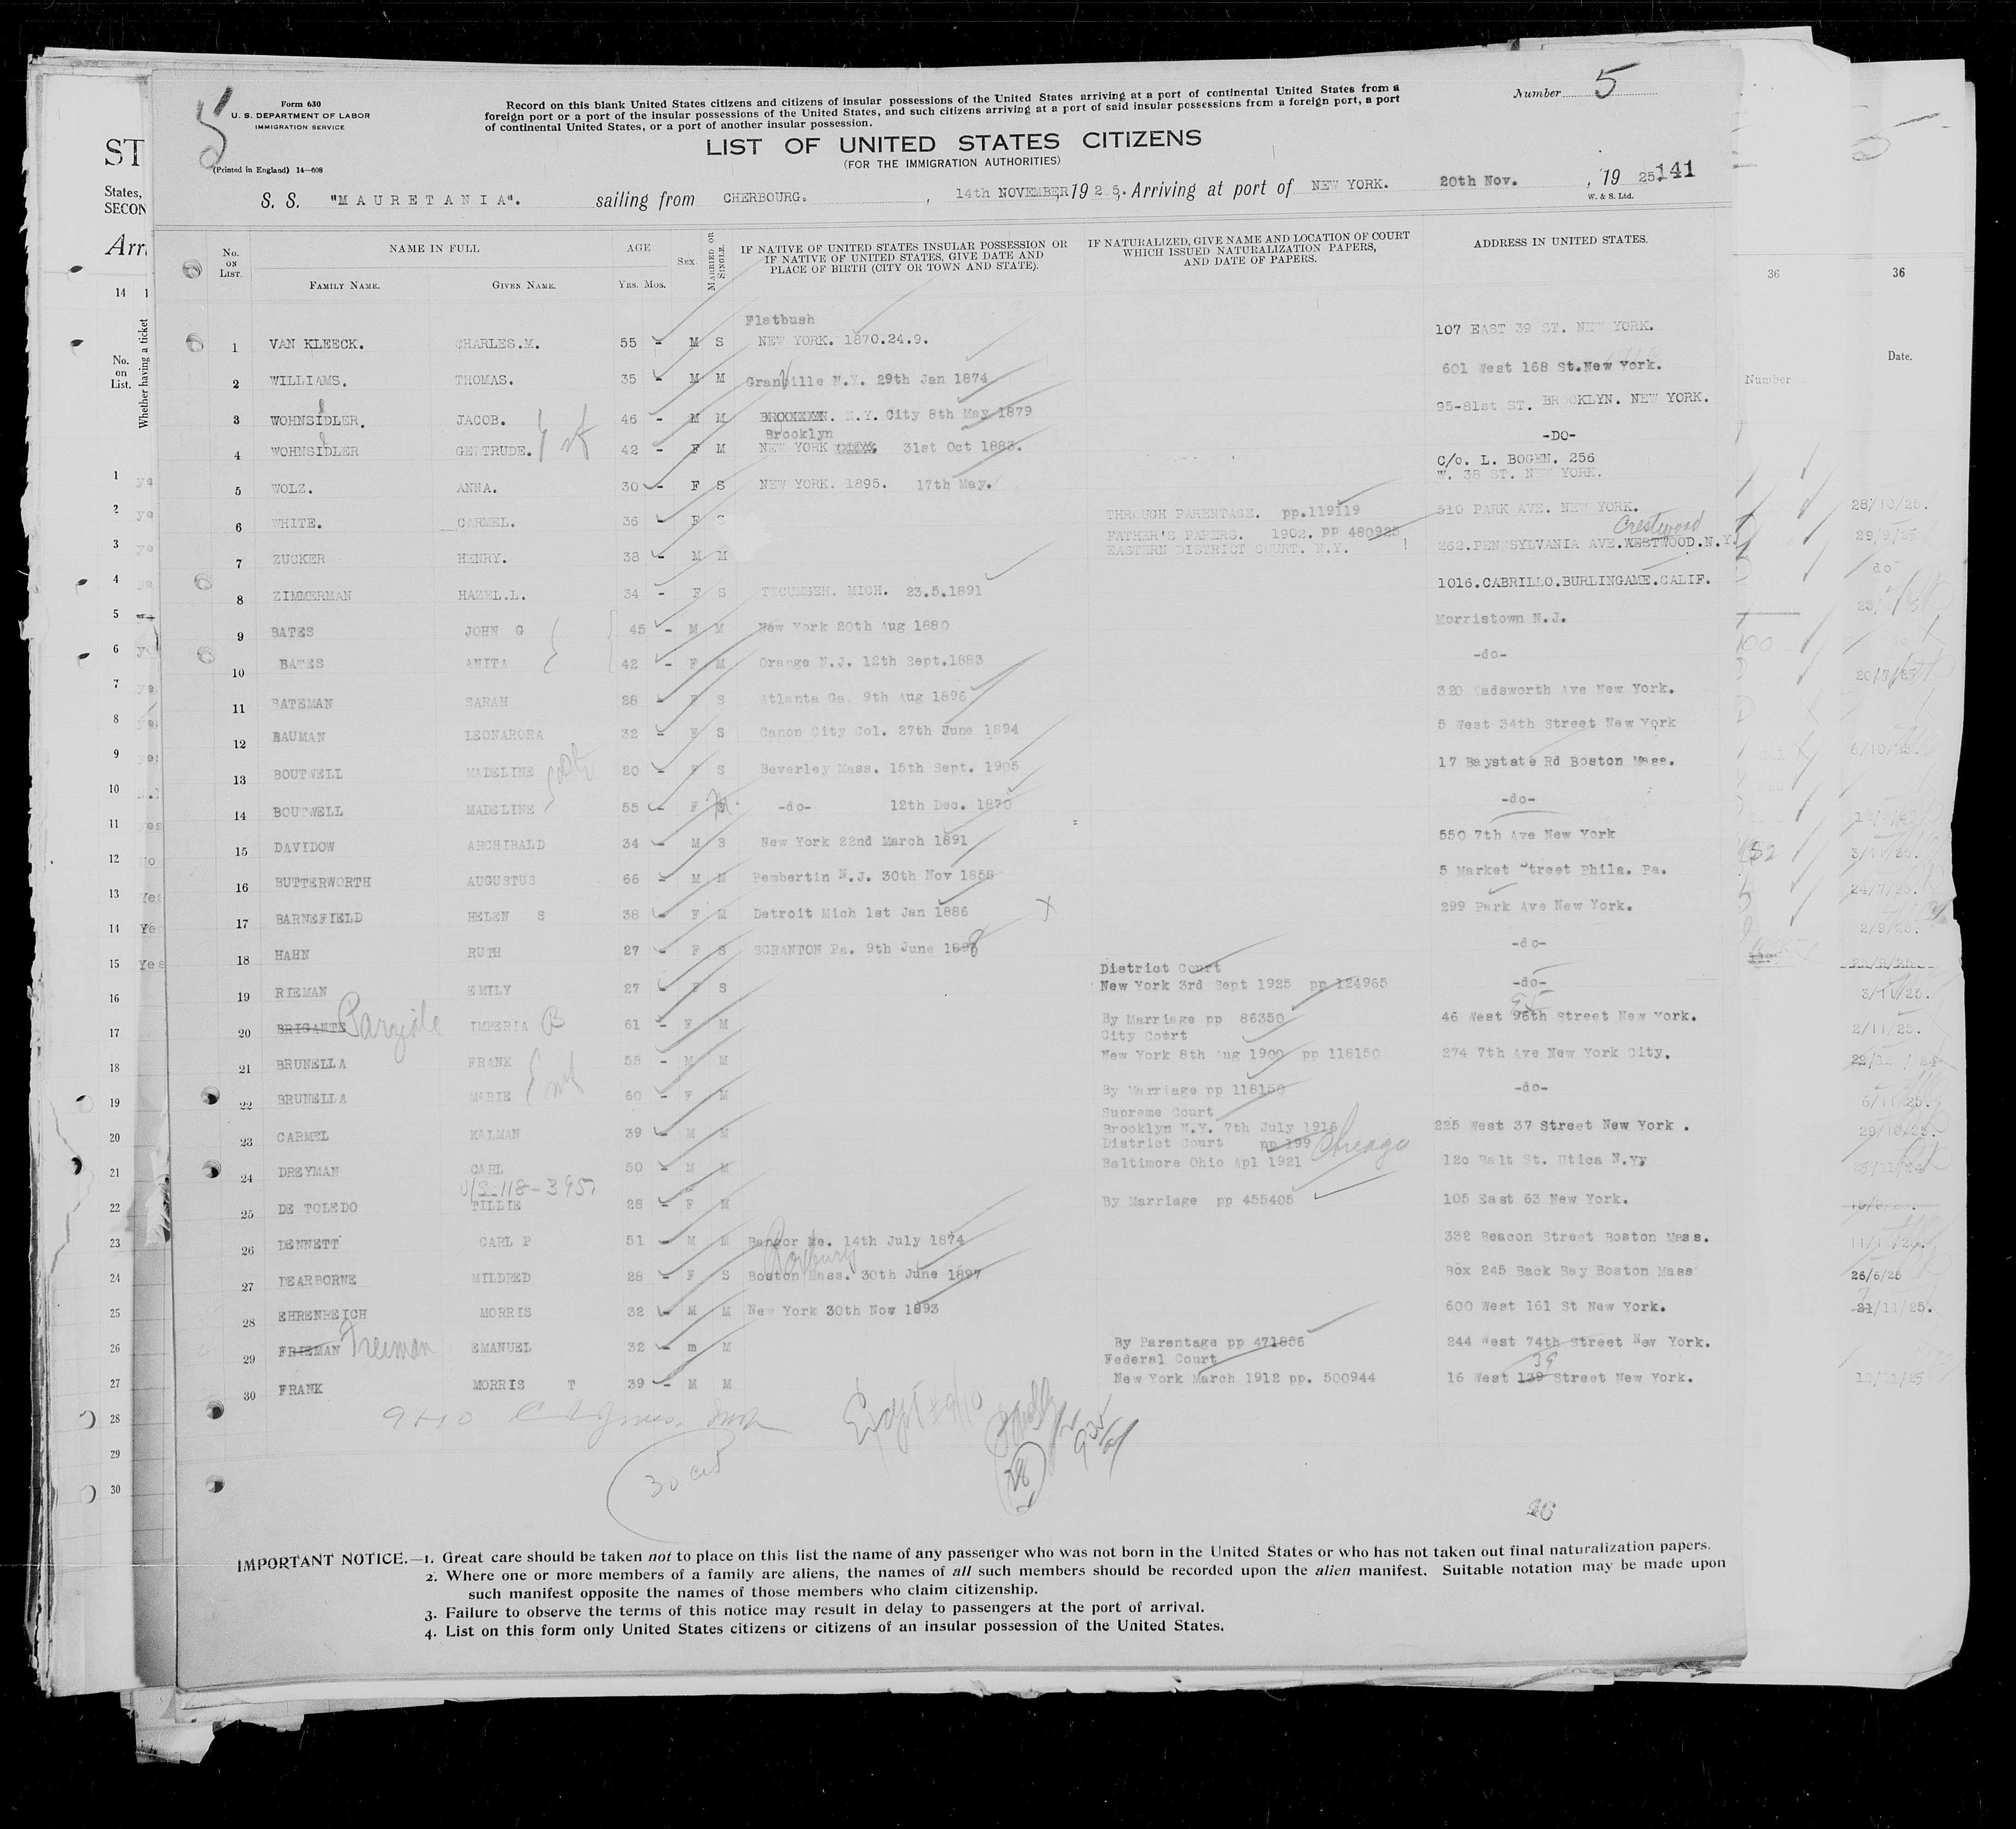 Form 630
U. S. DEPARTMENT OF LABOR
IMMIGRATION SERVICE
(Printed in England) 14—608
5
Record on this blank United States citizens and citizens of insular possessions of the United States arriving at a port of continental United States from a
foreign port or a port of the insular possessions of the United States, and such citizens arriving at a port of said insular possessions from a foreign port, a port
of continental United States, or a port of another insular possession.
Number 5
LIST OF UNITED STATES CITIZENS
(FOR THE IMMIGRATION AUTHORITIES)
S. S. "MAURETANIA". sailing from CHERBOURG. , 14th NOVEMBER, 1925. Arriving at port of NEW YORK. 20th Nov. , 19 25. 141
W. & S. Ltd.
No. ON LIST. NAME IN FULL FAMILY NAME. GIVEN NAME. AGE Yrs. Mos. SEX. MARRIED OR SINGLE. IF NATIVE OF UNITED STATES INSULAR POSSESSION OR IF NATIVE OF UNITED STATES, GIVE DATE AND PLACE OF BIRTH (CITY OR TOWN AND STATE). IF NATURALIZED, GIVE NAME AND LOCATION OF COURT WHICH ISSUED NATURALIZATION PAPERS, AND DATE OF PAPERS. ADDRESS IN UNITED STATES.
Flatbush
1 VAN KLEECK. CHARLES.M. 55 - M S NEW YORK. 1870.24.9. 107 EAST 39 ST. NEW YORK.
2 WILLIAMS. THOMAS. 35 - M M Granville N.Y. 29th Jan 1874 601 West 168 St. New York.
3 WOHNSIDLER. JACOB. 46 - M M N.Y. City 8th May 1879 95-81st ST. BROOKLYN. NEW YORK.
Brooklyn
4 WOHNSIDLER GERTRUDE. 42 - F M NEW YORK 31st Oct 1883. -DO-
5 WOLZ. ANNA. 30 - F S NEW YORK. 1895. 17th May. C/o. L. BOGEN. 256 W. 38 ST. NEW YORK.
6 WHITE. CARMEL. 36 - F S THROUGH PARENTAGE. pp.119119 510 PARK AVE. NEW YORK.
Crestwood
7 ZUCKER HENRY. 38 - M M FATHER'S PAPERS. 1902. pp 480925 EASTERN DISTRICT COURT. N.Y. 262.PENNSYLVANIA AVE.WESTWOOD.N.Y.
8 ZIMMERMAN HAZEL.L. 34 - F S TECUMSEH. MICH. 23.5.1891 1016.CABRILLO.BURLINGAME.CALIF.
9 BATES JOHN G 45 - M M New York 20th Aug 1880 Morristown N.J.
10 BATES ANITA 42 - F M Orange N.J. 12th Sept.1883 -do-
11 BATEMAN SARAH 28 - F S Atlanta Ga. 9th Aug 1896 320 Wadsworth Ave New York.
12 BAUMAN LEONARORA 32 - F S Canon City Col. 27th June 1894 5 West 34th Street New York
13 BOUTWELL MADELINE 20 - F S Beverley Mass. 15th Sept. 1905 17 Baystate Rd Boston Mass.
14 BOUTWELL MADELINE 55 - F M -do- 12th Dec. 1870 -do-
15 DAVIDOW ARCHIBALD 34 - M S New York 22nd March 1891 550 7th Ave New York
16 BUTTERWORTH AUGUSTUS 66 - M M Pembertin N.J. 30th Nov 1858 5 Market Street Phila. Pa.
17 BARNEFIELD HELEN S 38 - F M Detroit Mich 1st Jan 1886 X 299 Park Ave New York.
18 HAHN RUTH 27 - F S SCRANTON Pa. 9th June 1898 -do-
19 RIEMAN EMILY 27 - F S District Court New York 3rd Sept 1925 pp 124965 -do-
20 BRIGANTE IMPERIA B 61 - F M By Marriage pp 86350 46 West 96th Street New York.
21 BRUNELLA FRANK 55 - M M City Court New York 8th Aug 1900 pp 118150 274 7th Ave New York City.
22 BRUNELLA MARIE 60 - F M By Marriage pp 118150 -do-
23 CARMEL KALMAN 39 - M M Supreme Court Brooklyn N.Y. 7th July 1916 225 West 37 Street New York .
24 DREYMAN CARL 50 - M M District Court pp 199 Chicago Baltimore Ohio Apl 1921 120 Balt St. Utica N.Yy
25 DE TOLEDO TILLIE 28 - F M By Marriage pp 455405 105 East 63 New York.
26 DENNETT CARL P 51 - M M Bangor Me. 14th July 1874 332 Beacon Street Boston Mass.
Roxbury
27 DEARBORNE MILDRED 28 - F S Boston Mass. 30th June 1897 Box 245 Back Bay Boston Mass
28 EHRENREICH MORRIS 32 - M M New York 30th Nov 1893 600 West 161 St New York.
29 FRIEMAN Freiman EMANUEL 32 - m M By Parentage pp 471856 244 West 74th Street New York.
39
30 FRANK MORRIS T 39 - M M Federal Court New York March 1912 pp. 500944 16 West 139 Street New York.
30 cit
28
IMPORTANT NOTICE.—1. Great care should be taken not to place on this list the name of any passenger who was not born in the United States or who has not taken out final naturalization papers.
2. Where one or more members of a family are aliens, the names of all such members should be recorded upon the alien manifest. Suitable notation may be made upon
such manifest opposite the names of those members who claim citizenship.
3. Failure to observe the terms of this notice may result in delay to passengers at the port of arrival.
4. List on this form only United States citizens or citizens of an insular possession of the United States.